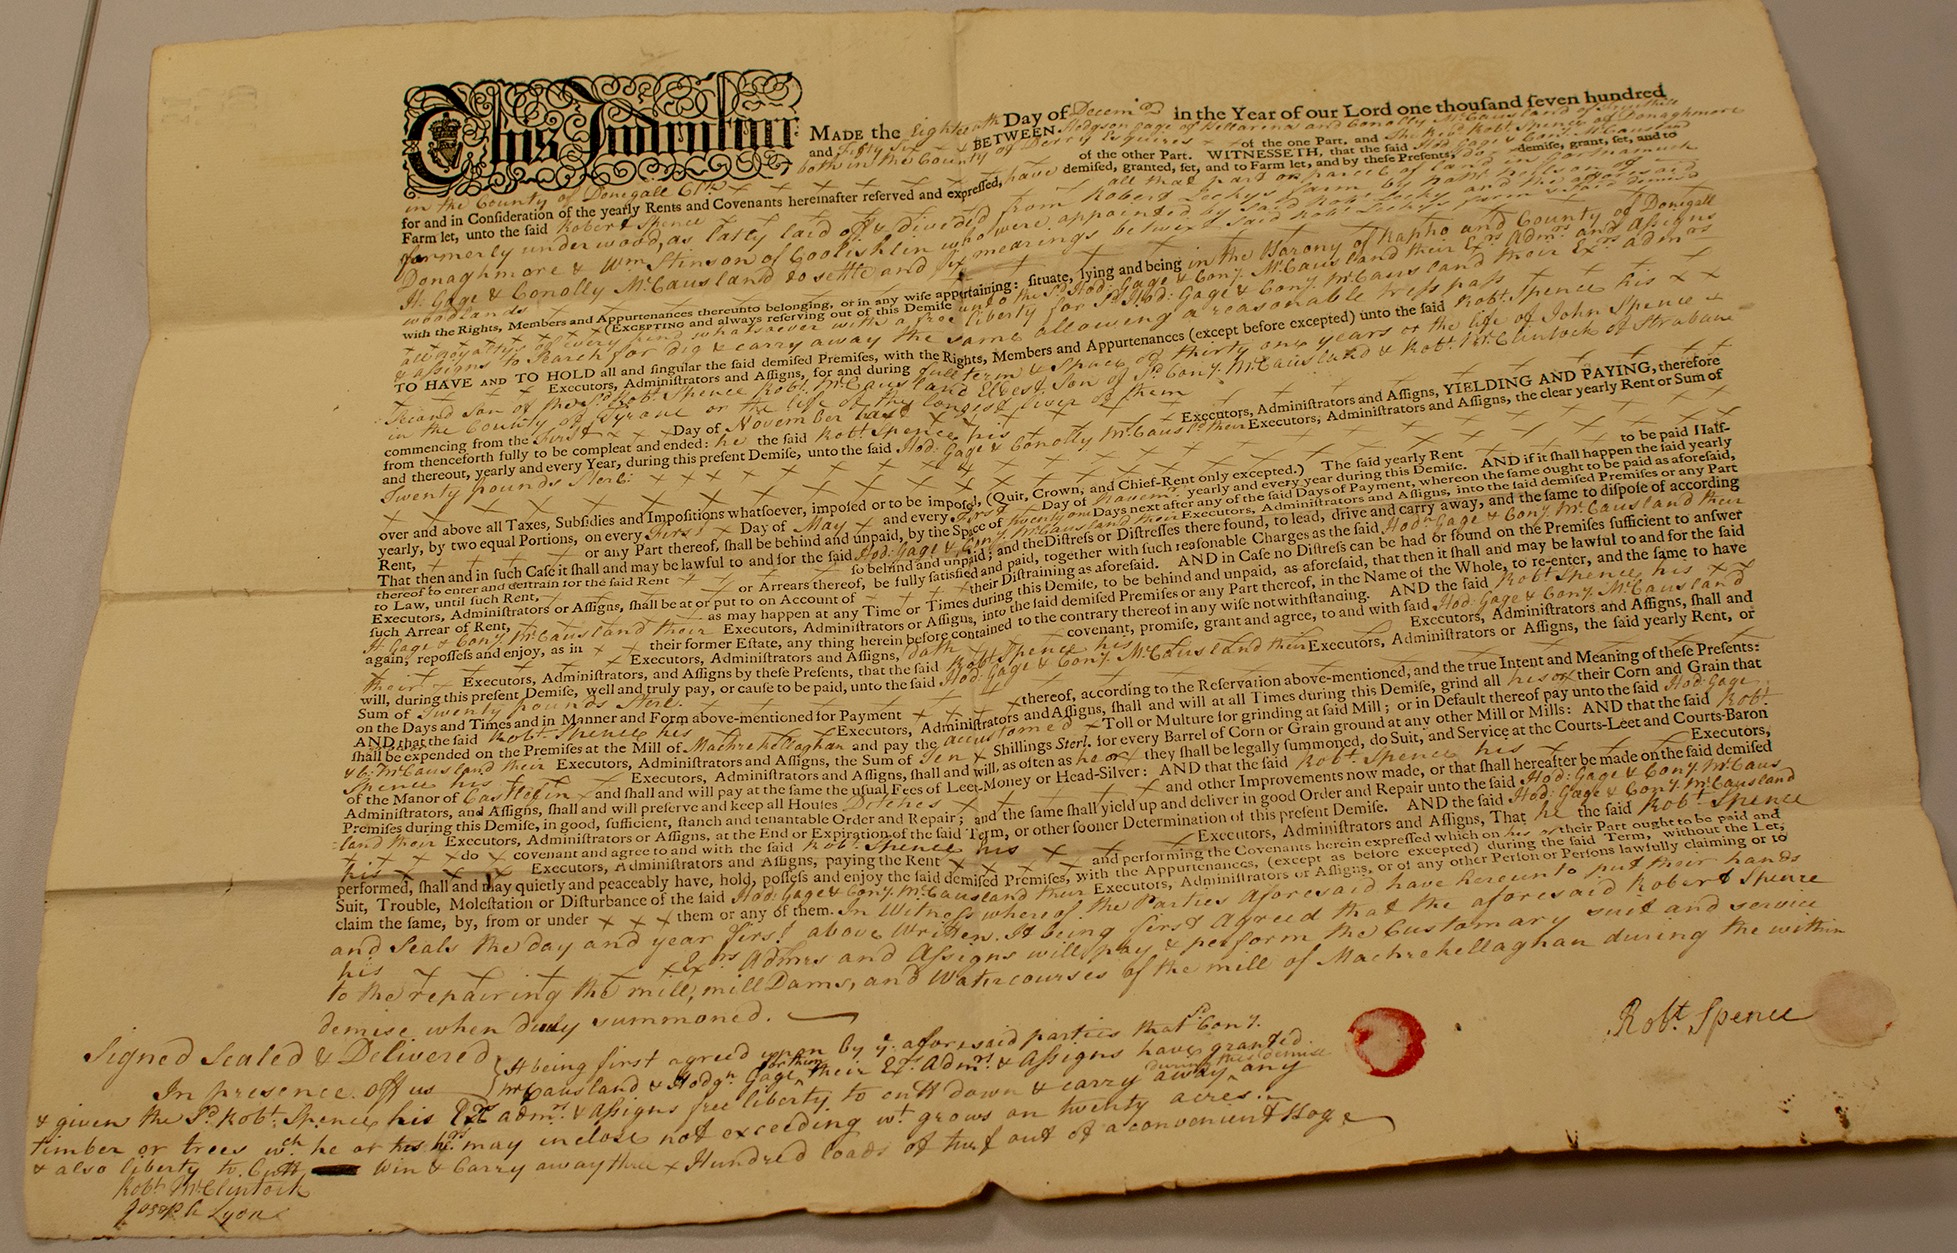 This Indenture MADE the Eighteenth Day of Decembr in the Year of our Lord one thouſand ſeven hundred
and Fifty Six × × BETWEEN Hodgson Gage of Bellarena and Conolly McCausland of Fruithill
both in the County of Derry Esquires × × of the one Part, and The Revd. Robt. Spence of Donaghmore
in the County of Donegall Clk × × × × × × of the other Part. WITNESSETH, that the ſaid Hod: Gage & Cony. McCausland
for and in Conſideration of the yearly Rents and Covenants hereinafter reſerved and expreſſed, have demiſed, granted, ſet, and to Farm let, and by theſe Preſents, do demiſe, grant, ſet, and to
Farm let, unto the ſaid Robert Spence all that part or parcel of land in
formerly underwood, as latly laid off & divided from Robert Leckys farm by
Donaghmore & Wm Stinson of Coolishlin who were appointed by said Robt. Lecky and the aforesaid
H: Gage & Conolly McCausland to settle and fix mearings betwixt said Robt. Leckys farm & said demised
woodlands × × × × ×
with the Rights, Members and Appurtenances thereunto belonging, or in any wiſe appertaining: ſituate, lying and being in the Barony of Rapho and County of Donegall
× × × × (EXCEPTING and always reſerving out of this Demiſe unto the Sd. Hod: Gage & Cony. McCausland their Exrs. Admrs. and Assigns
all royaltys of every kind whatsoever with a free liberty for Sd. Hod: Gage & Cony. McCausland their Exrs. Admrs
& assigns to Search for dig & carry away the same allowing a reasonable tresspass × × ×
TO HAVE AND TO HOLD all and ſingular the ſaid demiſed Premiſes, with the Rights, Members and Appurtenances (except before excepted) unto the ſaid Robt. Spence his × ×
× × × Executors, Adminiſtrators and Aſſigns, for and during full term & Space of thirty one years or the life of John Spence
Second Son of the Sd. Robt. Spence Robt. McCausland Eldest Son of Sd. Cony. McCausland & Robt. McClintock of Strabane
in the County of Tyrone or the life of the longest liver of them × × × ×
commencing from the First × × × Day of November last × × ×
from thenceforth fully to be compleat and ended: he the ſaid Robt. Spence his × × Executors, Adminiſtrators and Aſſigns, YIELDING AND PAYING, therefore
and thereout, yearly and every Year, during this preſent Demiſe, unto the ſaid Hod: Gage & Conolly McCausld their Executors, Adminiſtrators and Aſſigns, the clear yearly Rent or Sum of
Twenty pounds Sterl: × × × × × × ×
over and above all Taxes, Subſidies and Impoſitions whatſoever, impoſed or to be impoſed, (Quit, Crown, and Chief-Rent only excepted.) The ſaid yearly Rent to be paid Half-
yearly, by two equal Portions, on every First × Day of May × and every First Day of Novemr. yearly and every year during this Demiſe. AND if it ſhall happen the ſaid yearly
Rent, × × × × or any Part thereof, ſhall be behind and unpaid, by the Space of twenty one Days next after any of the ſaid Days of Payment, whereon the ſame ought to be paid as aforeſaid,
That then and in ſuch Caſe it ſhall and may be lawful to and for the ſaid Hod: Gage & Cony. McCausland their Executors, Adminiſtrators and Aſſigns, into the ſaid demiſed Premiſes or any Part
thereof to enter and deſtrain for the ſaid Rent × × × ſo behind and unpaid; and the Diſtreſs or Diſtreſſes there found, to lead, drive and carry away, and the ſame to diſpoſe of according
to Law, until ſuch Rent, × × × or Arrears thereof, be fully ſatisfied and paid, together with ſuch reaſonable Charges as the ſaid Hodn Gage & Cony. McCausland their
Executors, Adminiſtrators or Aſſigns, ſhall be at or put to on Account of × × × their Diſtraining as aforeſaid. AND in Caſe no Diſtreſs can be had or found on the Premiſes ſufficient to anſwer
ſuch Arrear of Rent, × × × as may happen at any Time or Times during this Demiſe, to be behind and unpaid, as aforeſaid, that then it ſhall and may be lawful to and for the ſaid
H: Gage & Cony. McCausland their Executors, Adminiſtrators or Aſſigns, into the ſaid demiſed Premiſes or any Part thereof, in the Name of the Whole, to re-enter, and the ſame to have
again, repoſſeſs and enjoy, as in × × their former Eſtate, any thing herein before contained to the contrary thereof in any wiſe notwithſtanding. AND the ſaid Robt. Spence his × ×
× × × × Executors, Adminiſtrators and Aſſigns, doth covenant, promiſe, grant and agree, to and with ſaid Hod: Gage & Cony. McCausland
their × Executors, Adminiſtrators, and Aſſigns by theſe Preſents, that the ſaid Robt. Spence his Executors, Adminiſtrators and Aſſigns, ſhall and
will, during this preſent Demiſe, well and truly pay, or cauſe to be paid, unto the ſaid Hod: Gage & Cony. McCausland their Executors, Adminiſtrators or Aſſigns, the ſaid yearly Rent, or
Sum of Twenty pounds Sterl. × × ×
on the Days and Times and in Manner and Form above-mentioned for Payment × × × thereof, according to the Reſervation above-mentioned, and the true Intent and Meaning of theſe Preſents:
AND that the ſaid Robt. Spence his × Executors, Adminiſtrators and Aſſigns, ſhall and will at all Times during this Demiſe, grind all his or their Corn and Grain that
ſhall be expended on the Premiſes at the Mill of Machrekellaghan and pay the accustomed × Toll or Multure for grinding at ſaid Mill; or in Default thereof pay unto the ſaid Hod: Gage
& C: McCausland their Executors, Adminiſtrators and Aſſigns, the Sum of Ten × Shillings Sterl. for every Barrel of Corn or Grain ground at any other Mill or Mills: AND that the ſaid Robt.
Spence his Executors, Adminiſtrators and Aſſigns, ſhall and will, as often as he or they ſhall be legally ſummoned, do Suit, and Service at the Courts-Leet and Courts-Baron
of the Manor of Castlefin × and ſhall and will pay at the ſame the uſual Fees of Leet-Money or Head-Silver: AND that the ſaid Robt Spence his × Executors,
Adminiſtrators, and Aſſigns, ſhall and will preſerve and keep all Houſes Ditches × × × and other Improvements now made, or that ſhall hereafter be made on the ſaid demiſed
Premiſes during this Demiſe, in good, ſufficient, ſtanch and tenantable Order and Repair; and the ſame ſhall yield up and deliver in good Order and Repair unto the ſaid Hod: Gage & Cony. McCaus
land their Executors, Adminiſtrators or Aſſigns, at the End or Expiration of the ſaid Term, or other ſooner Determination of this preſent Demiſe. AND the ſaid Hod: Gage & Cony. McCausland
× × × × do × covenant and agree to and with the ſaid Robt. Spence his × × Executors, Adminiſtrators and Aſſigns, That he the ſaid Robt. Spence
his × × × Executors, Adminiſtrators and Aſſigns, paying the Rent × × × × and performing the Covenants herein expreſſed which on his or their Part ought to be paid and
performed, ſhall and may quietly and peaceably have, hold, poſſeſs and enjoy the ſaid demiſed Premiſes, with the Appurtenances, (except as before excepted) during the ſaid Term, without the Let,
Suit, Trouble, Moleſtation or Diſturbance of the ſaid Hod: Gage & Cony. McCausland their Executors, Adminiſtrators or Aſſigns, or of any other Perſon or Perſons lawfully claiming or to
claim the ſame, by, from or under × × × them or any of them. In Witness whereof the Parties Aforesaid have hereunto put their hands
and Seals the day and year first above Written. It being first Agreed that the aforesaid Robert Spence
his × × × × Exrs Admrs and Assigns will pay & perform the Customary suit and service
to the repairing the mill, mill Dams, and Watercourses of the mill of Machrekellaghan during the within
demise when duly summoned.
Robt. Spence
Signed Sealed & Delivered
In presence off us
It being first agreed upon by ye. aforesaid parties that Sd Cony.
McCausland & Hodgn. Gage for them their Exrs. Admrs. & Assigns have granted
& given the Sd. Robt. Spence, his Exrs admrs. & Assigns free liberty to cutt down & carry away during this demise any
timber or trees wch. he or his may inclose not exceeding wt. grows on twenty acres.
& also liberty to Cutt win & Carry away three × Hundred loads of turf out of a convenient Hoge
Robt. McClintock
Joseph Lyon